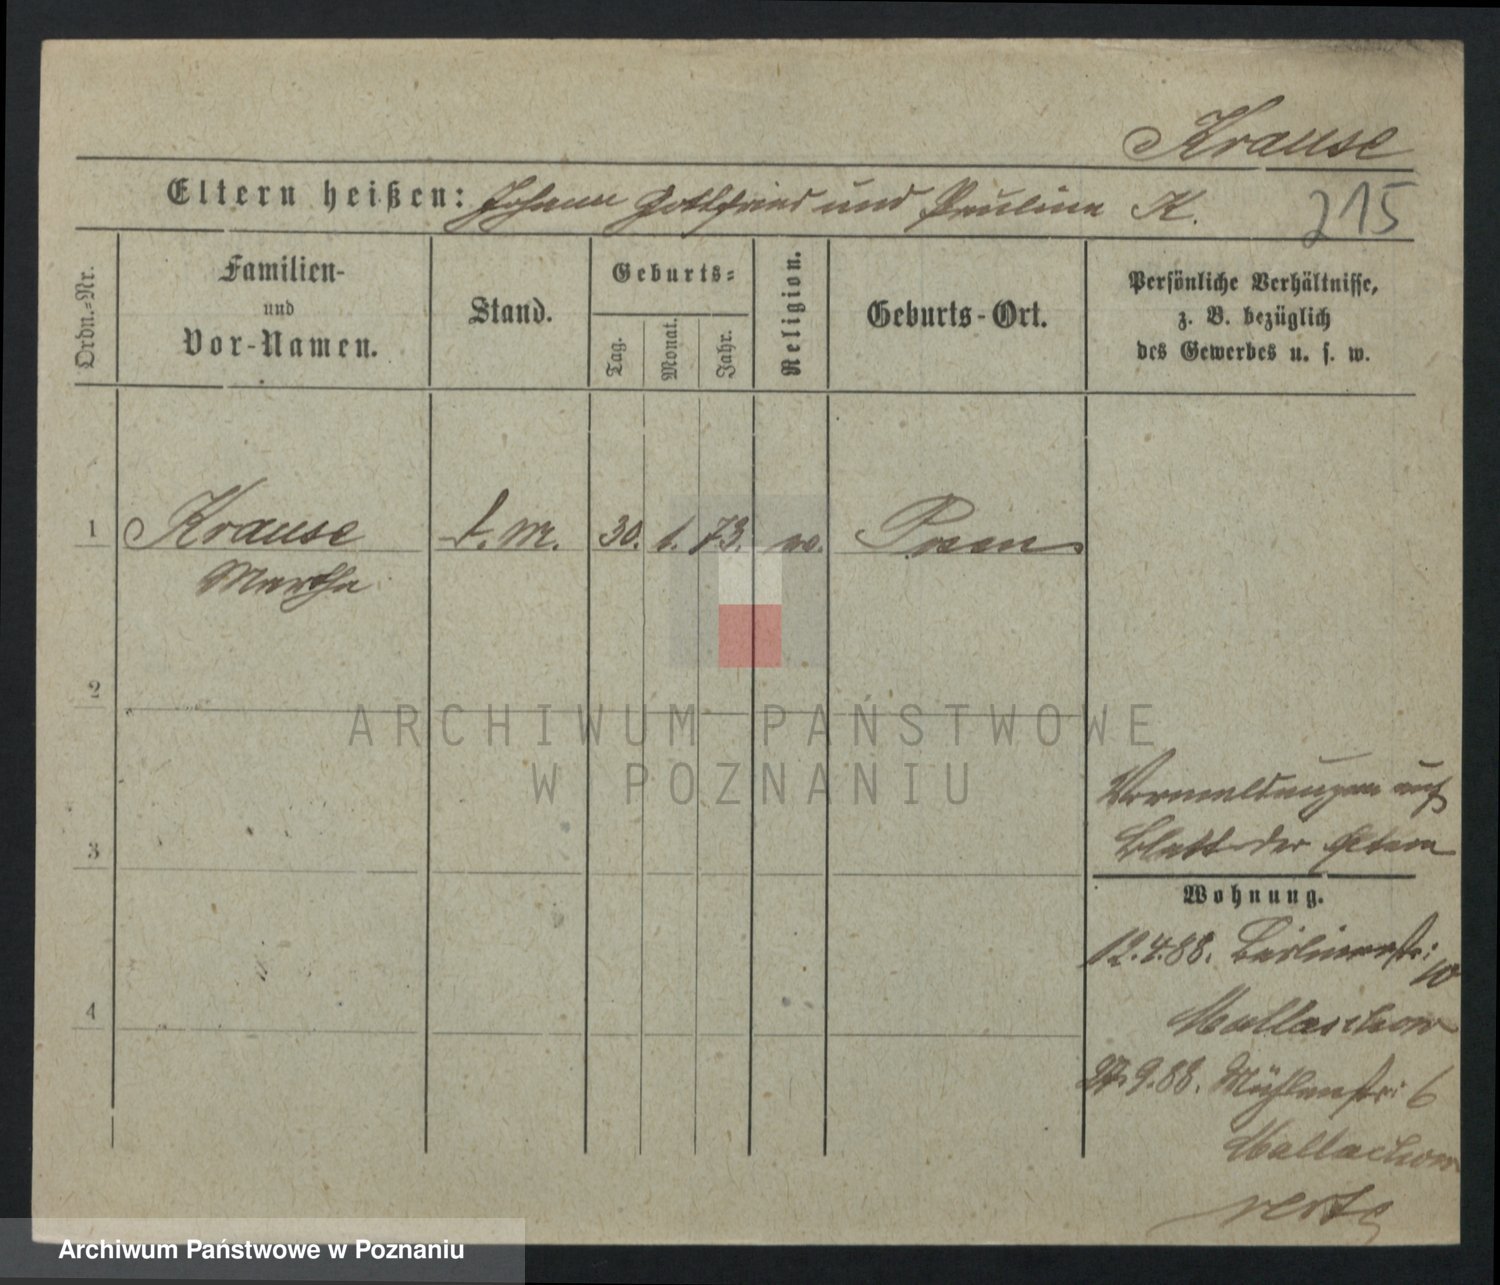 Krause
Eltern heißen: Johann Gottfried und Paulina K.
215
Ordn.-Nr.
Familien-
und
Vor-Namen.
Stand.
Geburts-
Tag.
Monat.
Jahr.
Religion.
Geburts-Ort.
Persönliche Verhältnisse,
z. B. bezüglich
des Gewerbes u. s. w.
1 Krause d. M. 30. 1. 73. ev. Posen
Martha
2
ARCHIWUM PAŃSTWOWE
W POZNANIU
Vermeldungen auf
3 Blatt der Eltern
Wohnung.
12.4.88. Berlinerstr: 10
4
27.9.88. Mühlenstr: 6
verte
Archiwum Państwowe w Poznaniu